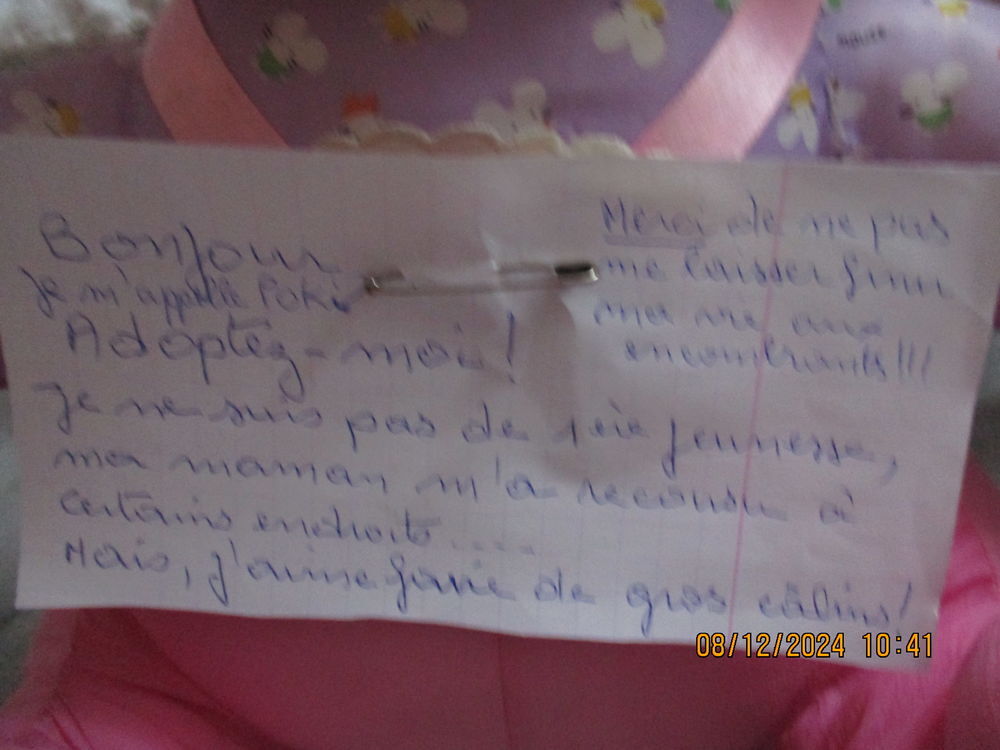 Bonjour
Je m'appelle Poki
Adoptez-moi!
Je ne suis pas de 1ère jeunesse,
ma maman m'a recousu à
certains endroits.....
Mais, j'aime faire de gros câlins!
Merci de ne pas
me laisser finir
ma vie aux
encombrants!!!
08/12/2024 10:41